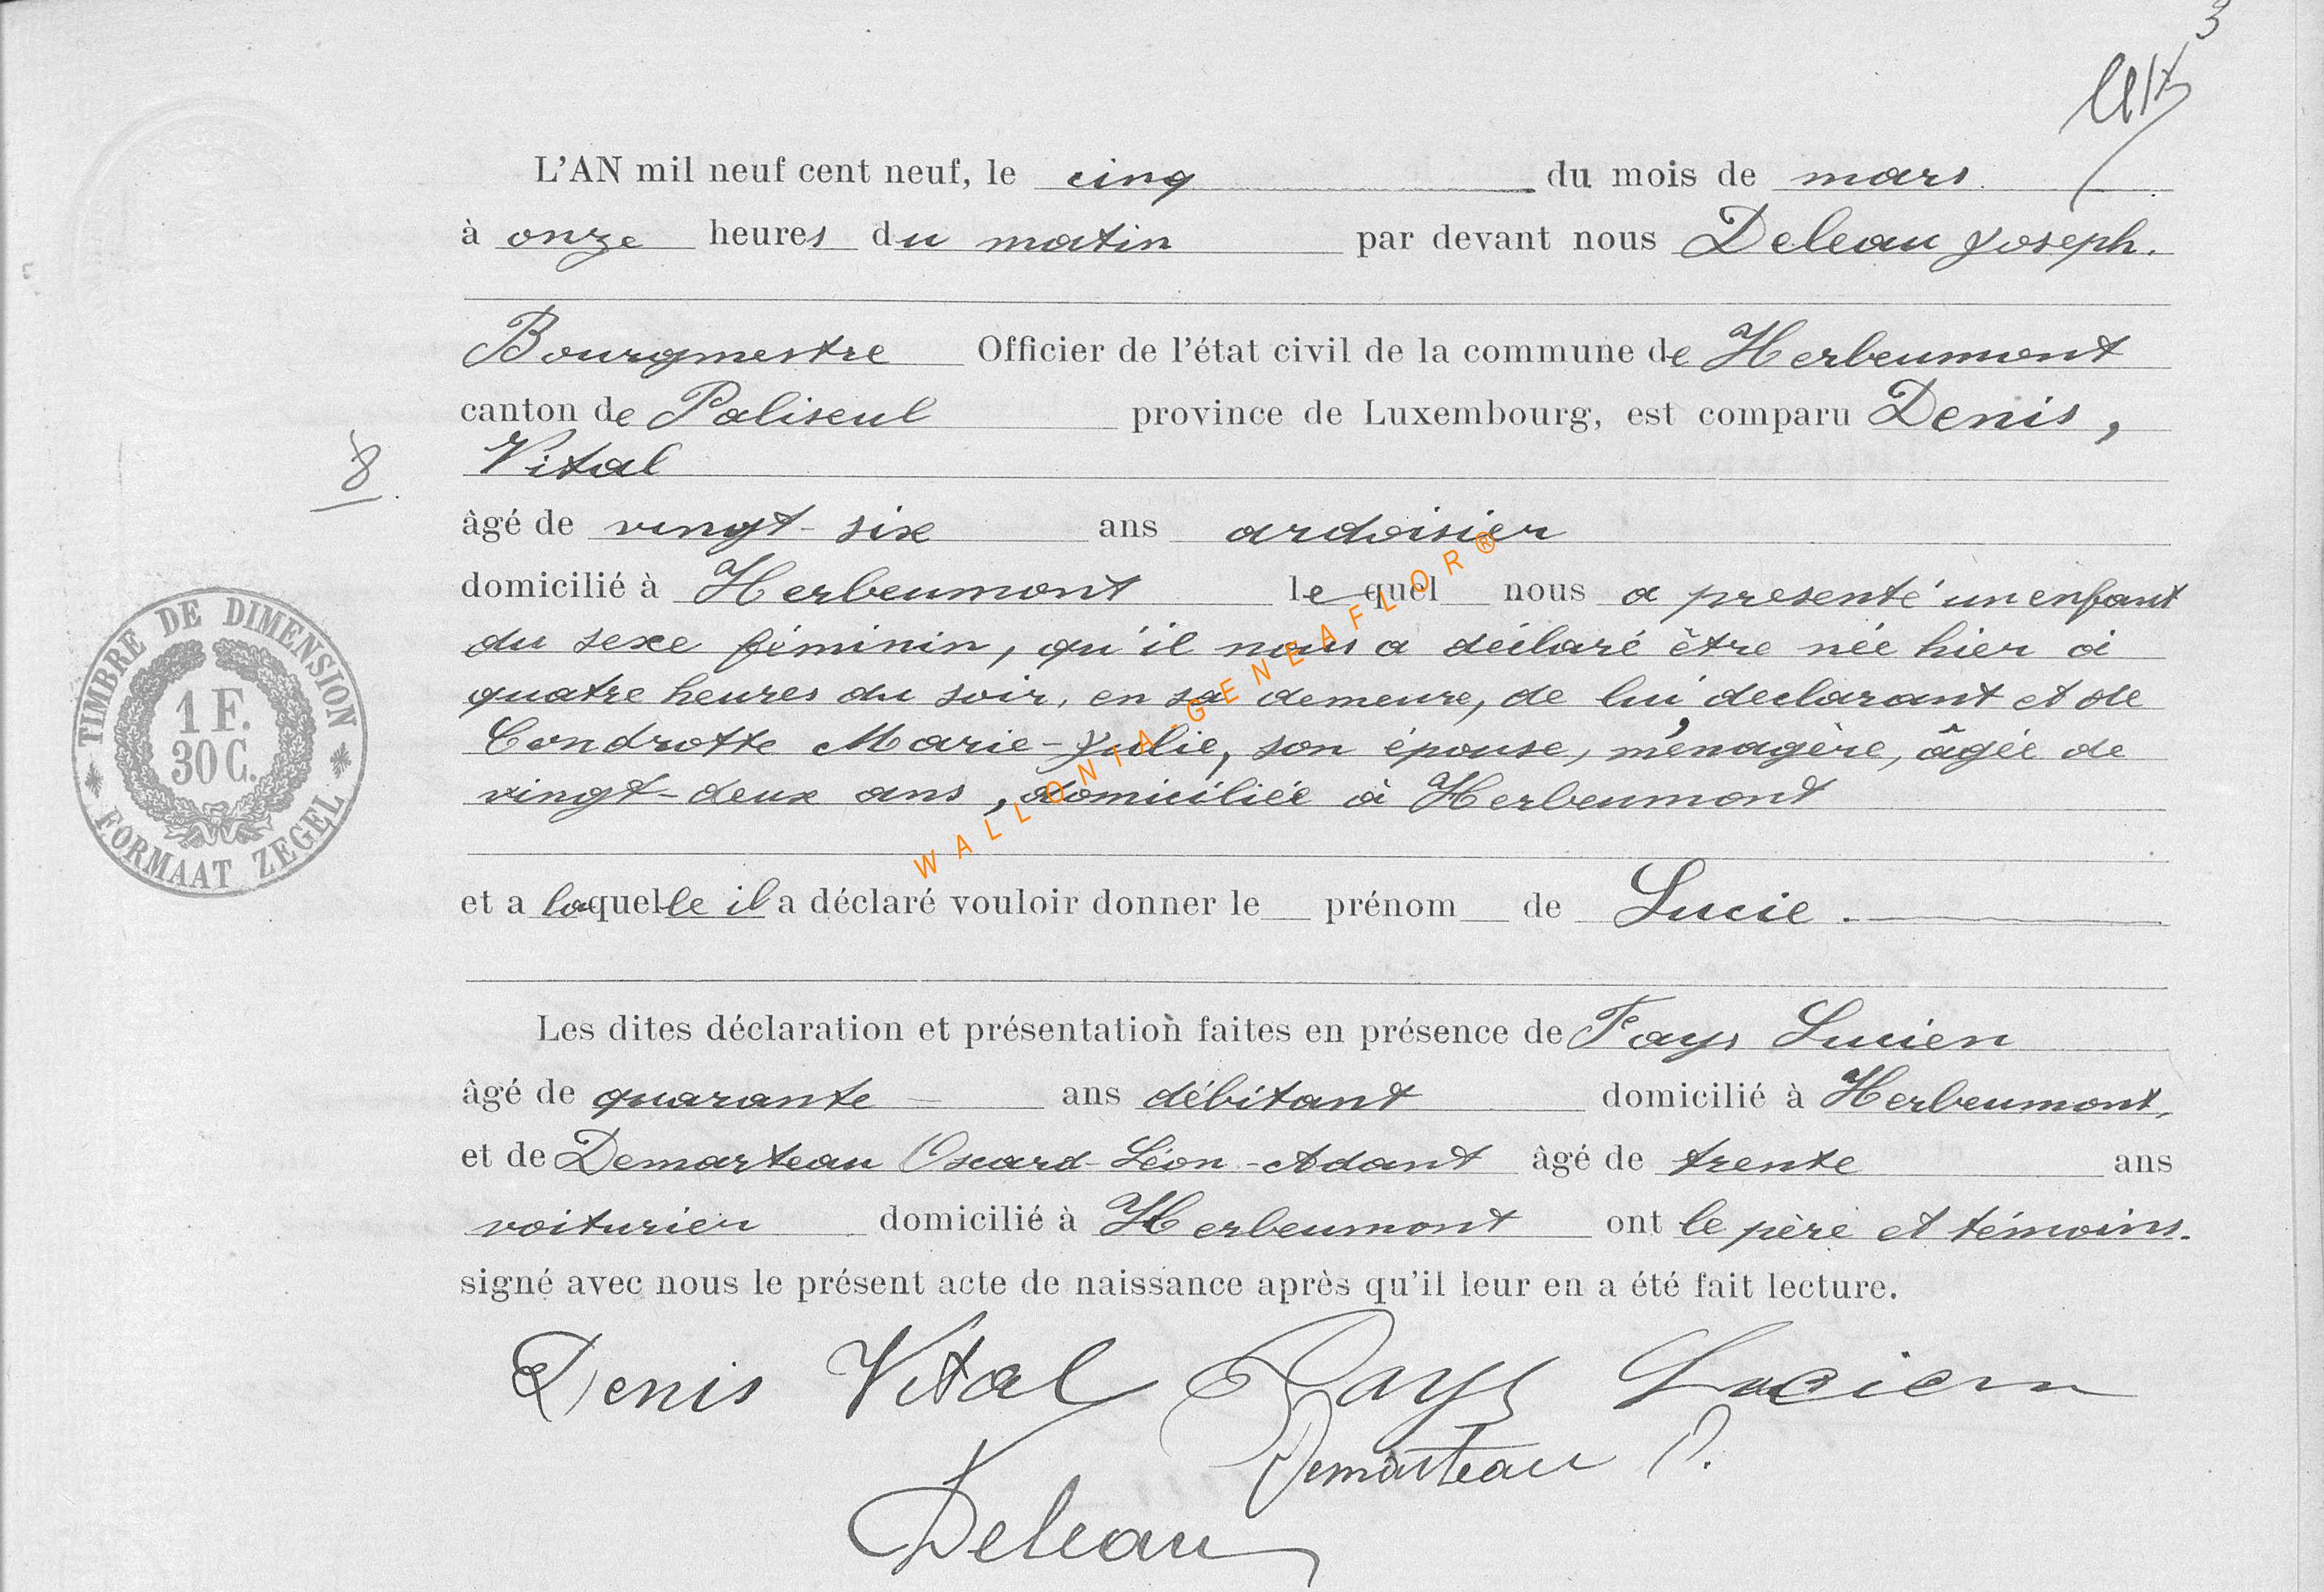 3
L'AN mil neuf cent neuf, le cinq du mois de mars.
à onze heures du matin par devant nous Deleau Joseph.
Bourgmestre Officier de l'état civil de la commune de Herbeumont
canton de Paliseul province de Luxembourg, est comparu Denis,
8.
Vital
âgé de vingt-six ans ardoisier
domicilié à Herbeumont lequel nous a présenté un enfant
du sexe féminin, qu'il nous a déclaré être née hier à
quatre heures du soir, en sa demeure, de lui déclarant et de
Condrotte Marie-Julie, son épouse, ménagère, âgée de
vingt-deux ans, domiciliée à Herbeumont
et a laquelle il a déclaré vouloir donner le prénom de Lucie.
Les dites déclaration et présentation faites en présence de Fays Lucien
âgé de quarante ans débitant domicilié à Herbeumont,
et de Demarteau Oscard-Léon-Adant âgé de trente ans
voiturier domicilié à Herbeumont ont le père et témoins.
signé avec nous le présent acte de naissance après qu'il leur en a été fait lecture.
Denis Vital Fays Lucien
Demarteau O.
Deleau
TIMBRE DE DIMENSION
1 F.
30 C.
FORMAAT ZEGEL
WALLONIA-GENEAFLOR®